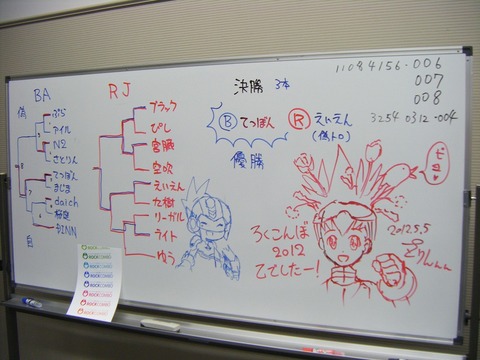 BA
偽
ぷら
アイル
N2
さとりん
てっぽん
まじま
daich
幻INN
白
RJ
ブラック
ぴし
宮藤
空吹
えいえん
九樹
リーガル
ライト
ゆう
決勝 3本
B てっぽん
優勝
R えいえん
(偽トロ)
11084156・006
007
008
3254 0312・004
ろくこんぼ
2012
乙でしたー!
2012.5.5
ROCKCOMBO
ROCKCOMBO
ROCKCOMBO
ROCKCOMBO
ROCKCOMBO
ROCKCOMBO
ROCKCOMBO